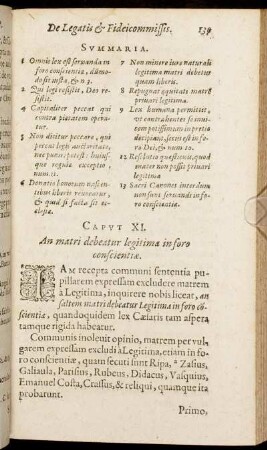 De Legatis & Fideicommissis. 139
SVMMARIA.
1 Omnis lex est servanda in
foro conscientiæ, dũmo-
do sit iusta, & n. 3.
2 Qui legi resistit, Deo re-
sistit.
4 Capitaliter peccat qui
contra pietatem opera-
tur.
5 Non dicitur peccare, qui
propriæ legis aucto-
ritate, huius-
que regulæ exceptio
num. 11.
6 Donatio bonorum nascen-
tibus liberis revocatur,
& quid si facta sit ec-
clesiæ.
7 Non minore iure naturali
legitima matri debetur
quam liberis.
8 Repugnat equitati matrẽ
privari legitima.
9 Lex humana permittit,
vt
potissimum in pretio
sit in foro
Dei, & num. 10.
12 Resolutio quæstionis, quod
mater non possit legitima
privari.
13 Sacri Canones interdum
non sunt servandi in fo-
ro conscientiæ.
CAPVT XI.
An matri debeatur legitima in foro
conscientiæ.
IAM recepta communi sententia pu-
pillarem expressam excludere matrem
à Legitima, inquirere nobis liceat, an
saltem matri debeatur Legitima in foro cõ-
scientiæ, quandoquidem lex Cæsaris tam aspera
tamque rigida habeatur.
Communis inoleuit opinio, matrem per vul-
garem expressam excludi à Legitima, etiam in fo-
ro conscientiæ, quam secuti sunt Ripa, Zasius,
Galiaula, Parisius, Rubeus, Didacus, Vasquius,
Emanuel Costa, Crassus, & reliqui, quamque ita
probarunt.
Primo,